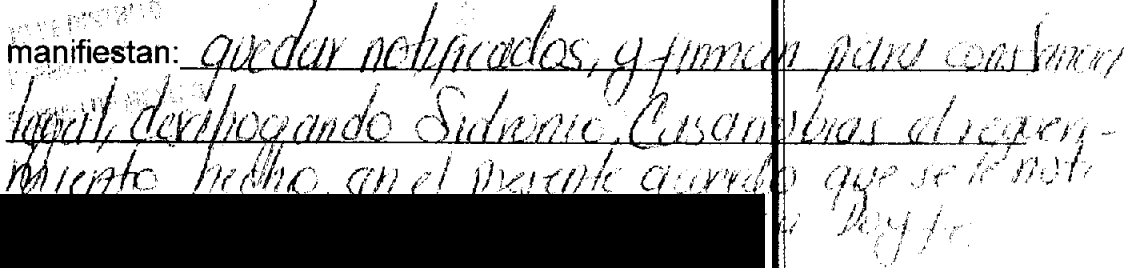 manifiestan: quedar notificados, y firman para constancia
legal, desahogando Sidronio Casarrubias el requeri-
miento hecho en el presente acuerdo que se le noti
Doy fe